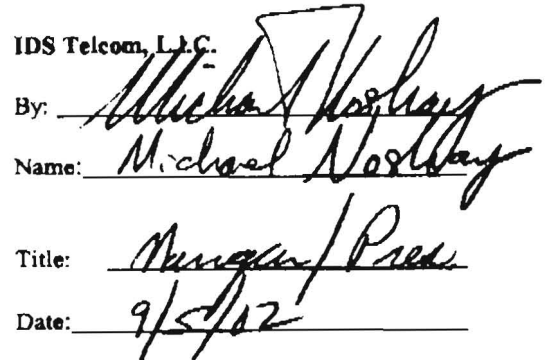 IDS Telcom, L.L.C.
By: Michael Noshay
Name: Michael Noshay
Title: Manager / Pres.
Date: 9/5/02